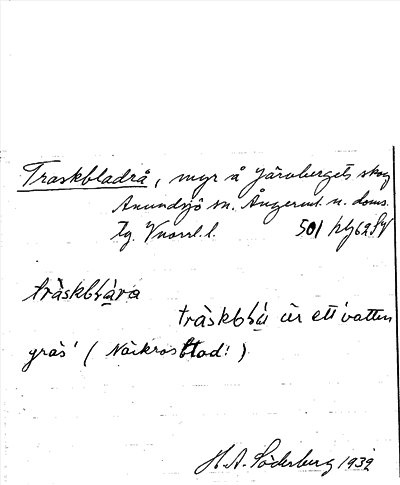 Traskbladrå, myr å Järvbergets skog
Anundsjö sn. Ångerml. n. doms.
tg. Vnorrl. l. 501
träskbḷára
träskbḷá är ett 'vatten
gräs' (Näckrosblad!)
H. A. Söderberg 1932